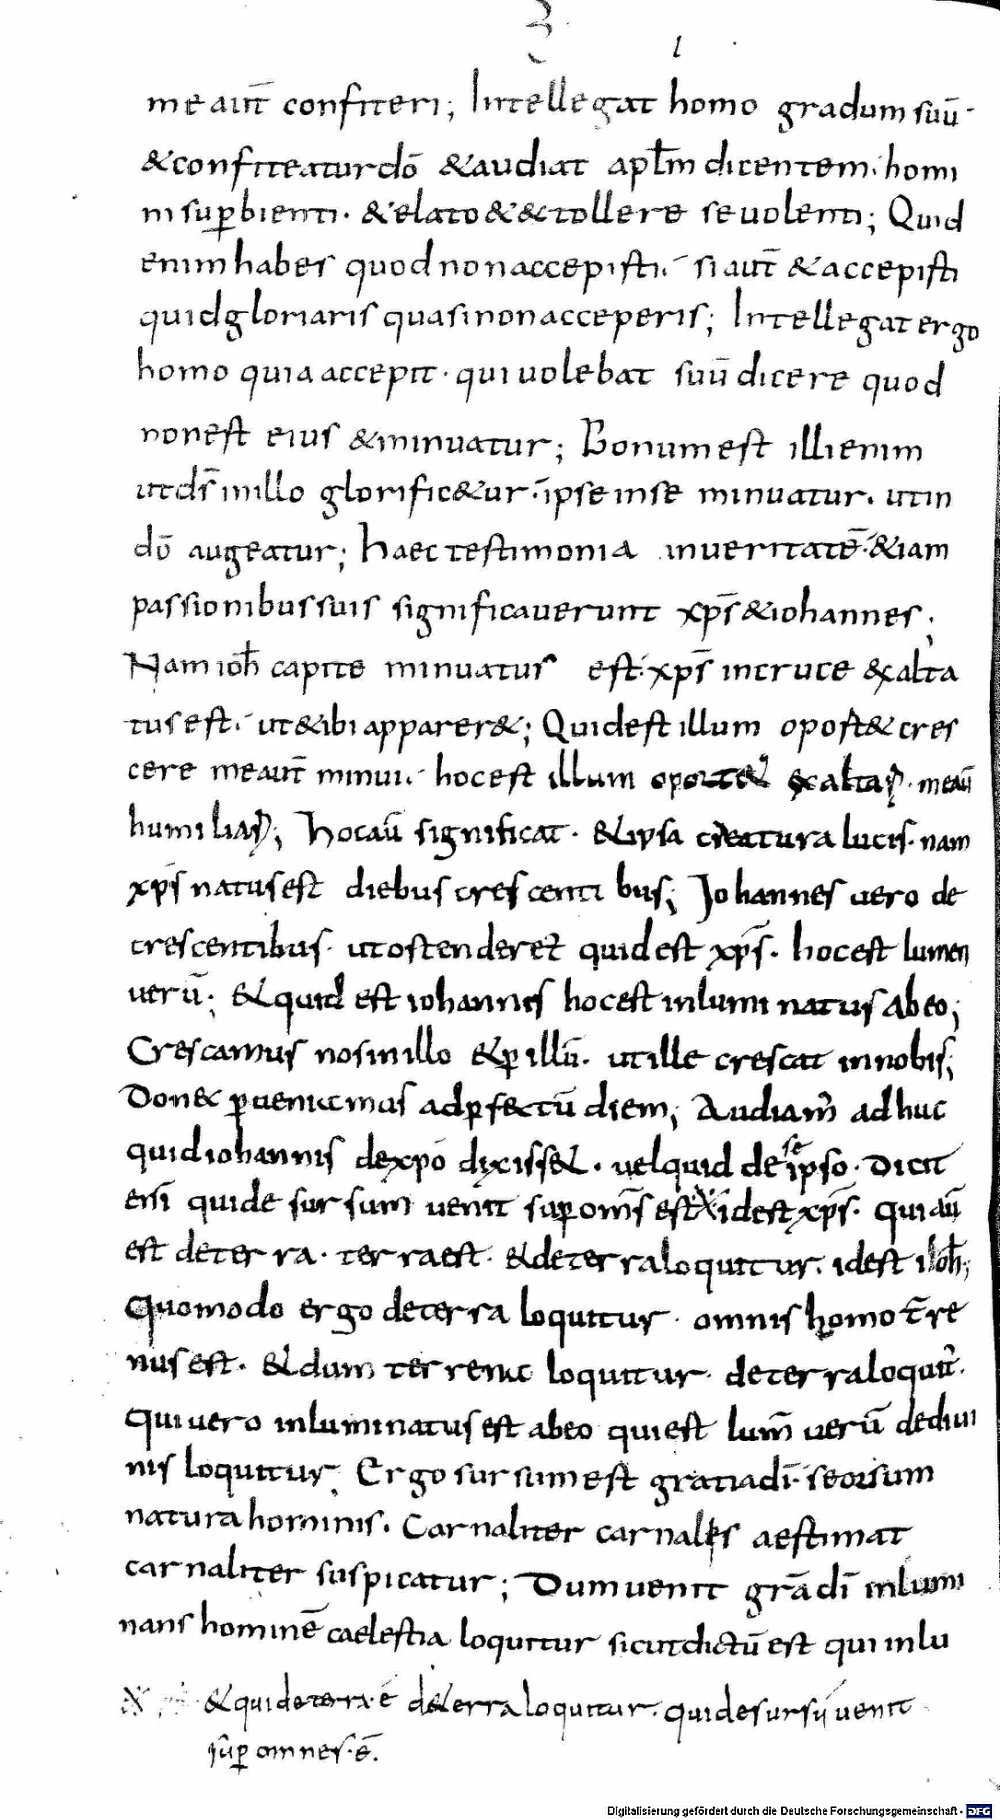 meaut̄ confiteri; Intellegat homo gradum suū
&confiteatur dō &audiat aplm̄ dicentem· homi
ni sup̱bienti· &elato &&tollere se uolenti; Quid
enim habes quod non accepisti· si aut̄ &accepisti
quid gloriaris quasi non acceperis; Intellegat ergo
homo quia accepit· qui uolebat suū dicere quod
non est eius &minuatur; Bonum est illi enim
ut ds̄ in illo glorific&ur· ipse in se minuatur· ut in
dō augeatur; Haec testimonia in ueritatē &iam
passionibus suis significauerunt xp̄s &iohannes;
Nam ioh̄ capite minuatus est· xp̄s in cruce exalta
tus est· ut &ibi apparer&; Quid est illum oport& cres
cere me aut̄ minui· hoc est illum oport& exaltaꝝ· me aū
humiliaꝝ; Hoc aū significat· &ipsa creatura lucis· nam
xp̄s natus est diebus crescentibus; Iohannes uero de
crescentibus· ut ostender& quid est xp̄s· hoc est lumen
uerū; &quid est iohannis hoc est inluminatus ab eo;
Crescamus nos in illo &p̱ illū· ut ille crescat in nobis;
Don&c p̱ueniamus ad p̱fectū diem; Audiam̄ adhuc
quid iohannis de xp̄o dixiss&· uel quid de se ipso· Dicit
eni̅ qui de sursum uenit sup̱ om̄s est· id est xp̄s· Qui aū
est de terra· terra est· &de terra loquitur· id est ioh̄;
Quomodo ergo de terra loquitur· omnis homo t̄re
nus est· &dum terrena loquitur· de terra loquit̄·
Qui uero inluminatus est ab eo qui est lum̄ uerū de diui
nis loquitur; Ergo sursum est gratia dī· seorsum
natura hominis· Carnaliter carnalis aestimat
carnaliter suspicatur; Dum uenit grā dī inlumi
nans hominē caelestia loquitur sicut dictū est qui inlu
&qui de terra· ē de terra loquitur· qui de sursū uenit
sup̱ omnes· ē·
Digitalisierung gefördert durch die Deutsche Forschungsgemeinschaft - DFG